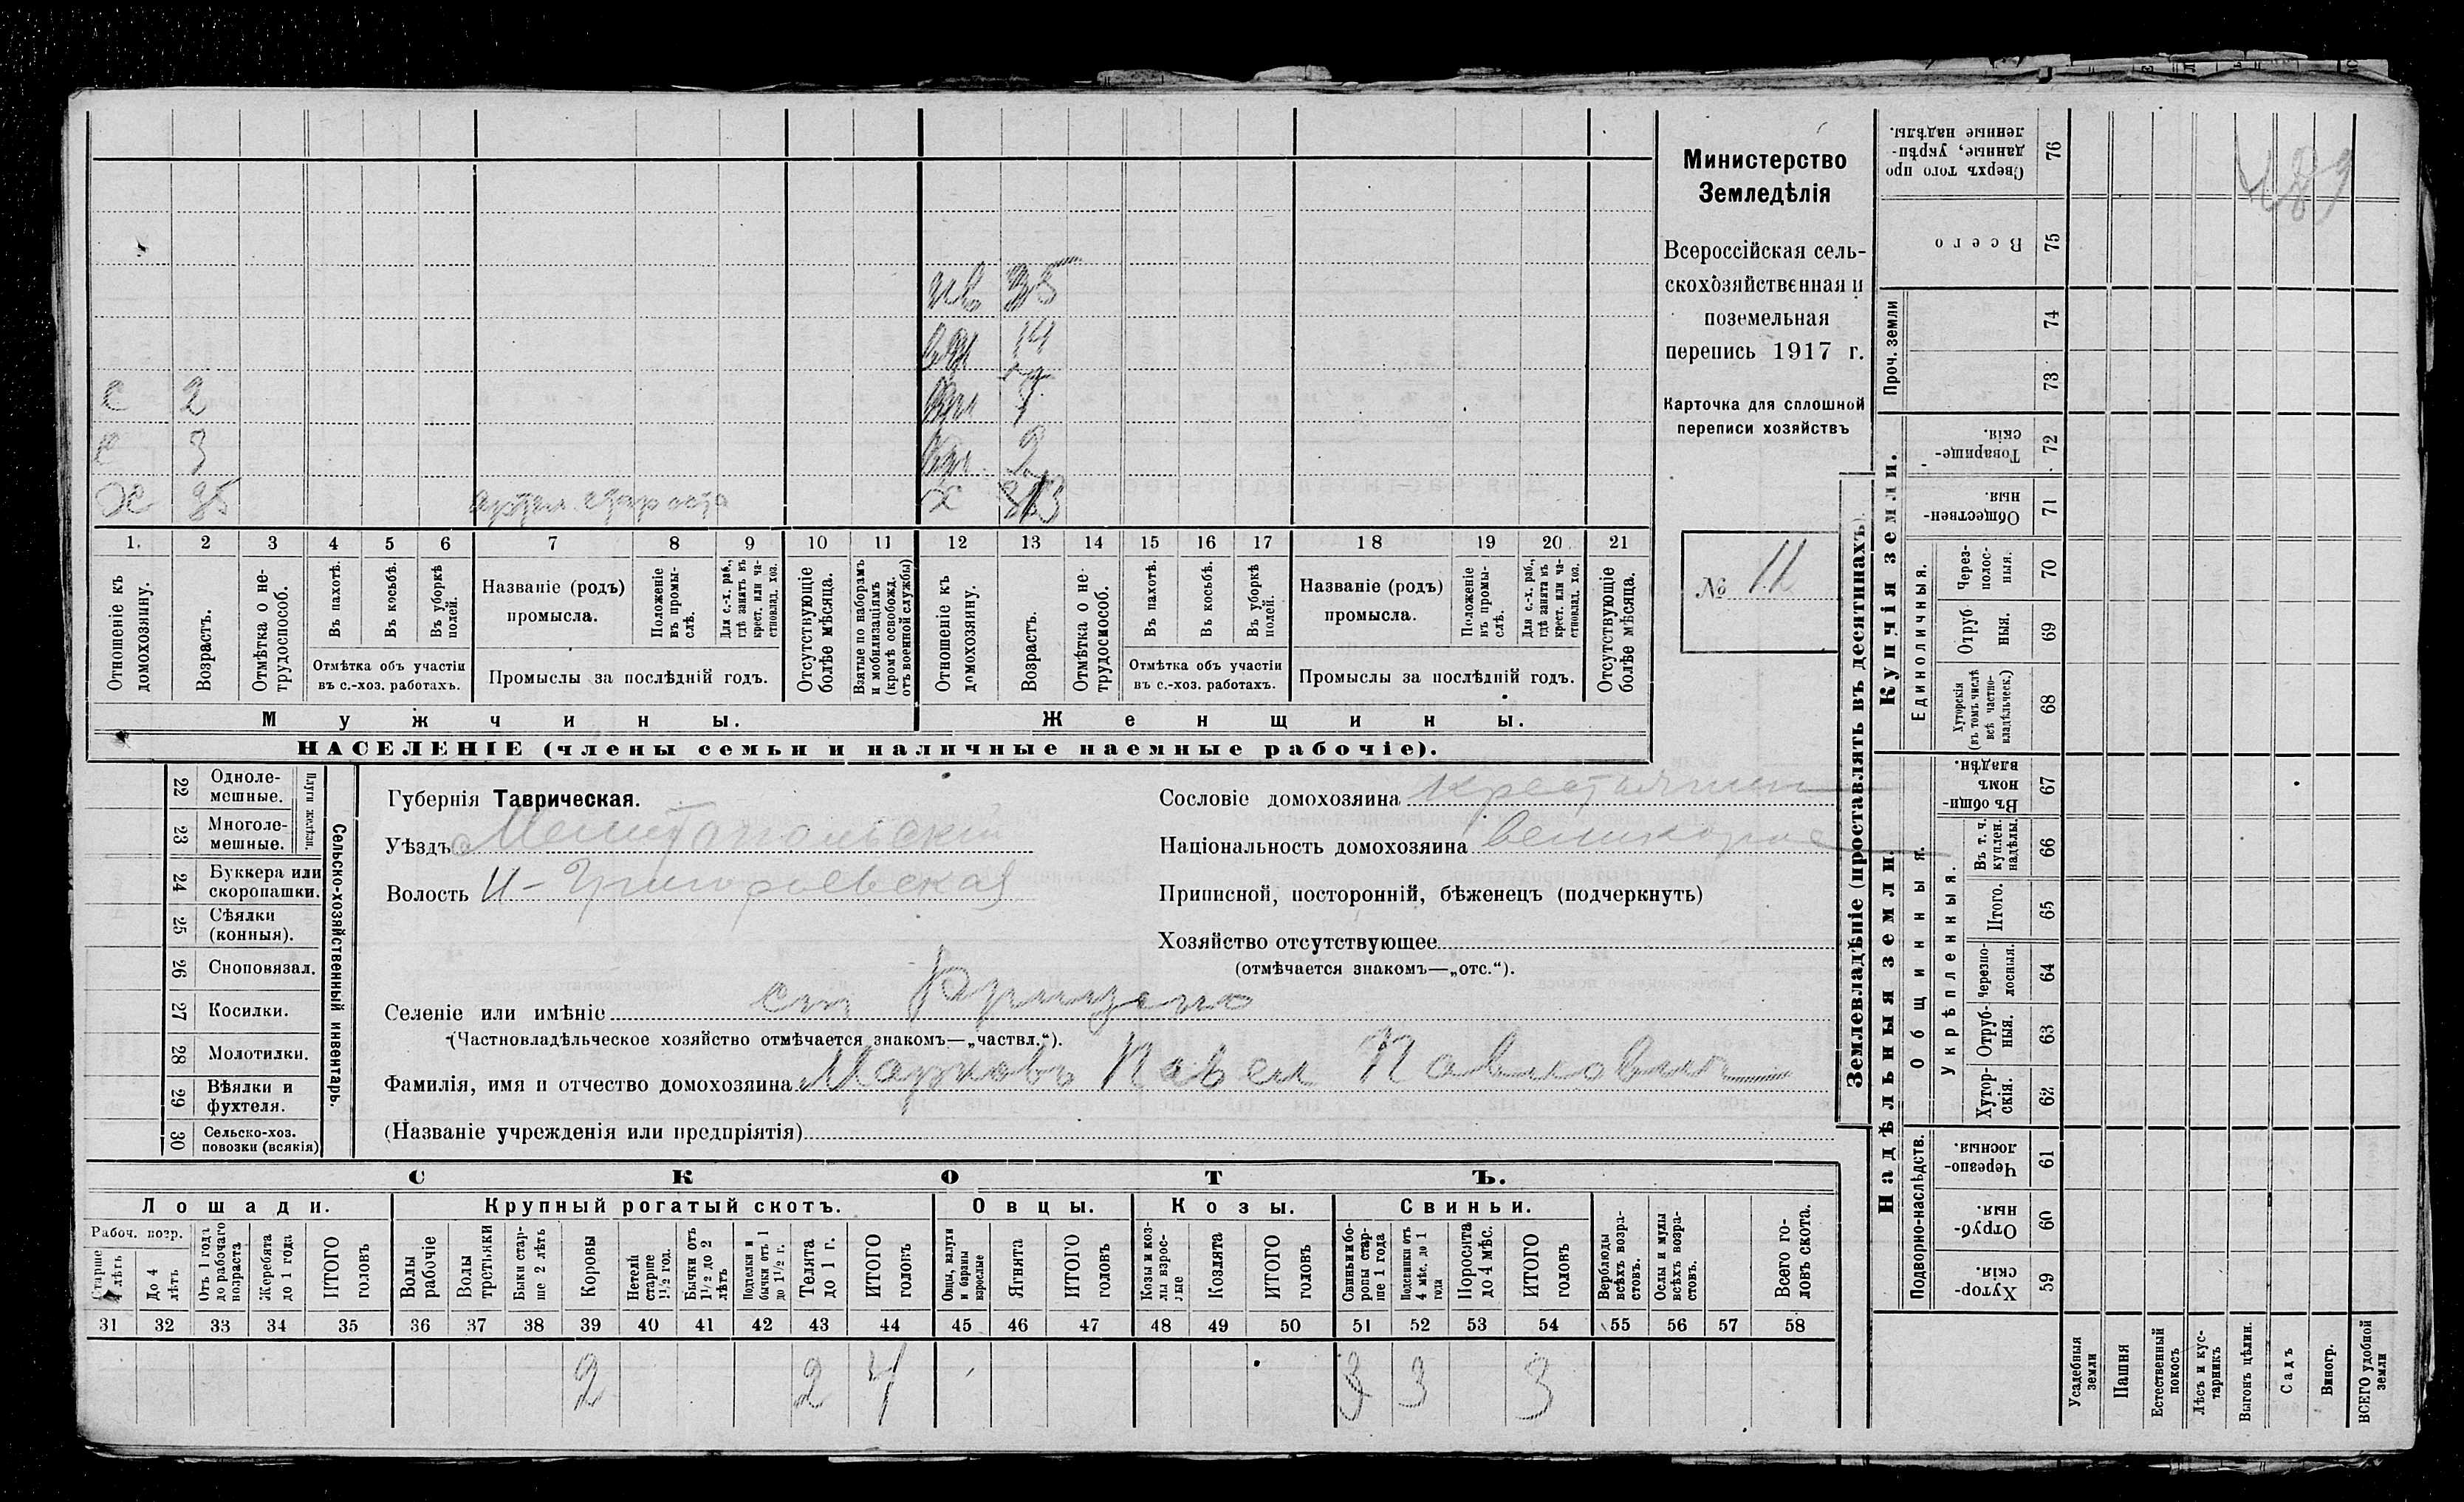 Министерство
Земледѣлія
Всероссійская сель-
скохозяйственная и
поземельная
перепись 1917 г.
Карточка для сплошной
переписи хозяйствъ
№ 11
с 2
с 3
х 35
35
14
7
2
х
1. 2 3 4 5 6 7 8 9 10 11 12 13 14 15 16 17 18 19 20 21
Отношеніе къ домохозяину.
Возрастъ.
Отмѣтка о не-трудоспособ.
Въ пахотѣ.
Въ косьбѣ.
Въ уборкѣ полей.
Отмѣтка объ участіи въ с.-хоз. работахъ.
Названіе (родъ) промысла.
Положеніе въ промы-слѣ.
Для с.-х. раб., гдѣ занятъ въ крест. или ча-стновлад. хоз.
Промыслы за послѣдній годъ.
Отсутствующіе болѣе мѣсяца.
Взятые по наборамъ и мобилизаціямъ (кромѣ освобожд. отъ военной службы)
Отношеніе къ домохозяину.
Возрастъ.
Отмѣтка о не-трудоспособ.
Въ пахотѣ.
Въ косьбѣ.
Въ уборкѣ полей.
Отмѣтка объ участіи въ с.-хоз. работахъ.
Названіе (родъ) промысла.
Положеніе въ промы-слѣ.
Для с.-х. раб., гдѣ занятъ въ крест. или ча-стновлад. хоз.
Промыслы за послѣдній годъ.
Отсутствующіе болѣе мѣсяца.
Мужчины. Женщины.
НАСЕЛЕНІЕ (члены семьи и наличные наемные рабочіе).
Сельско-хозяйственный инвентарь.
Плуги желѣзн.
22 Одноле-мешные.
23 Многоле-мешные.
24 Буккера или скоропашки.
25 Сѣялки (конныя).
26 Сноповязал.
27 Косилки.
28 Молотилки.
29 Вѣялки и фухтеля.
30 Сельско-хоз. повозки (всякія)
Губернія Таврическая.
Уѣздъ Мелитопольскій
Волость Н-Григорьевская
Сословіе домохозяина крестьянин
Національность домохозяина великорос
Приписной, посторонній, бѣженецъ (подчеркнуть)
Хозяйство отсутствующее
(отмѣчается знакомъ—„отс.“).
Селеніе или имѣніе ст
(Частновладѣльческое хозяйство отмѣчается знакомъ—„частвл.“).
Фамилія, имя и отчество домохозяина Марковъ Павел Павлович
(Названіе учрежденія или предпріятія)
СКОТЪ.
Лошади. Крупный рогатый скотъ. Овцы. Козы. Свиньи.
Рабоч. возр.
Старше 4 лѣтъ
До 4 лѣтъ
Отъ 1 года до рабочаго возраста
Жеребята до 1 года
ИТОГО головъ
Волы рабочіе
Волы третьяки
Быки стар-ше 2 лѣтъ
Коровы
Нетели старше 1½ год.
Бычки отъ 1½ до 2 лѣтъ
Подтелки и бычки отъ 1 до 1½ г.
Телята до 1 г.
ИТОГО головъ
Овцы, валухи и бараны взрослые
Ягнята
ИТОГО головъ
Козы и коз-лы взрос-лые
Козлята
ИТОГО головъ
Свиньи бо-ровы стар-ше 1 года
Подсвинки отъ 4 мѣс. до 1 года
Поросята до 4 мѣс.
ИТОГО головъ
Верблюды всѣхъ возра-стовъ.
Ослы и мулы всѣхъ возра-стовъ.
Всего го-ловъ скота.
31 32 33 34 35 36 37 38 39 40 41 42 43 44 45 46 47 48 49 50 51 52 53 54 55 56 57 58
2 2 4 3 3
Землевладѣніе (проставлять въ десятинахъ).
Надѣльныя земли. Купчія земли. Проч. земли
Подворно-наслѣдств.
Общинныя.
Укрѣпленныя.
Единоличныя.
76 Сверхъ того про данные, укрѣп-ленные надѣлы.
75 Всего
74
73
72 Товарище-скія.
71 Обществен-ныя
70 Через-полос-ныя.
69 Отруб ныя.
68 Хуторскія (въ томъ числѣ всѣ частно-владѣльческ.)
67 Въ общи-номъ владѣн.
66 Въ т. ч. куплен. надѣлы.
65 Итого.
64 Черезпо-лосныя.
63 Отруб-ныя.
62 Хутор-скія.
61 Черезпо-лосныя
60 Отруб-ныя.
59 Хутор-скія.
Усадебныя земли
Пашня
Естественный покосъ
Лѣсъ и кус-тарникъ
Выгонъ цѣлин.
Садъ
Виногр.
ВСЕГО удобной земли